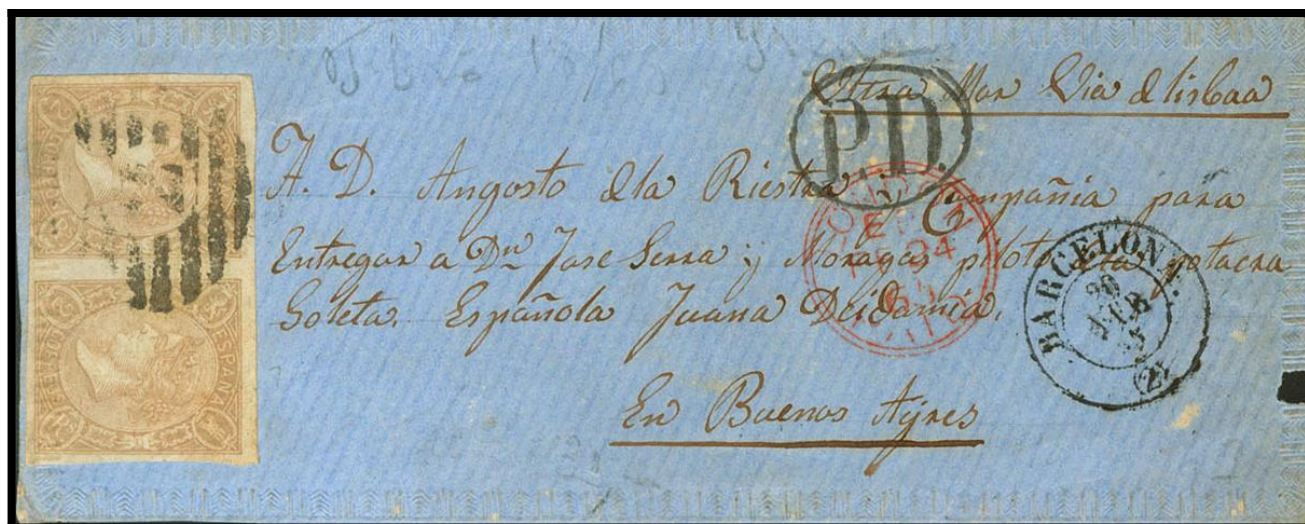 Ultra Mar Via d lisboa
P.D.
A. D. Angosto de la Riestra y Compañia para
Entregar a Dn Jose Serra y Moragas piloto de la
Goleta. Española Juana Deidamia.
En Buenos Ayres
BARCELONA.
(2)
LONDON
PAID
ESPAÑA